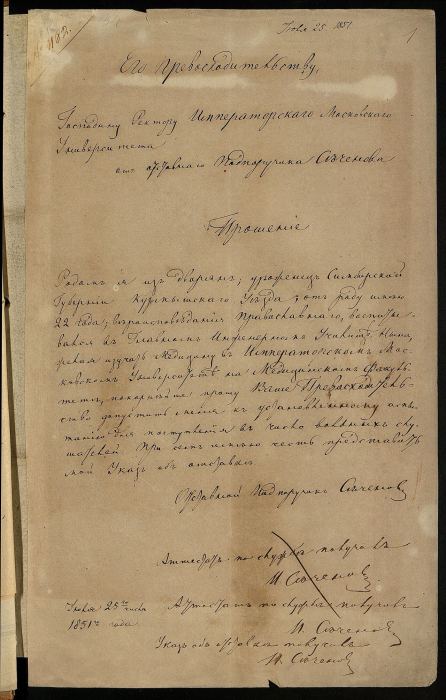 Іюля 25 1851
1
Его Превосходительству,
Господину Ректору Императорскаго Московскаго
Университета
отъ отставнаго Подпоручика Сѣченова
Прошеніе
Родомъ я изъ дворянъ; уроженецъ Симбирской
Губерніи Курмышскаго Уѣзда; отъ роду имѣю
22 года; вѣроисповѣданія Православнаго; воспиты
вался въ Главномъ Инженерномъ Училищѣ. Нынѣ,
желая изучать Медицину въ Императорскомъ Мос-
ковскомъ Университетѣ на Медицинскомъ Факуль-
тетѣ, покорнѣйше прошу Ваше Превосходитель-
ство допустить меня къ установленному испы-
танію для поступленія въ число вольныхъ слу-
шателей. При семъ имѣю честь представить
мой Указъ объ отставкѣ.
Отставной Подпоручикъ Сѣченовъ
Аттестатъ по службѣ получилъ
И. Сѣченовъ.
Іюля 25го числа
1851го года
Аттестатъ по службѣ получилъ
И. Сѣченовъ
Указъ объ отставкѣ получилъ
И. Сѣченовъ